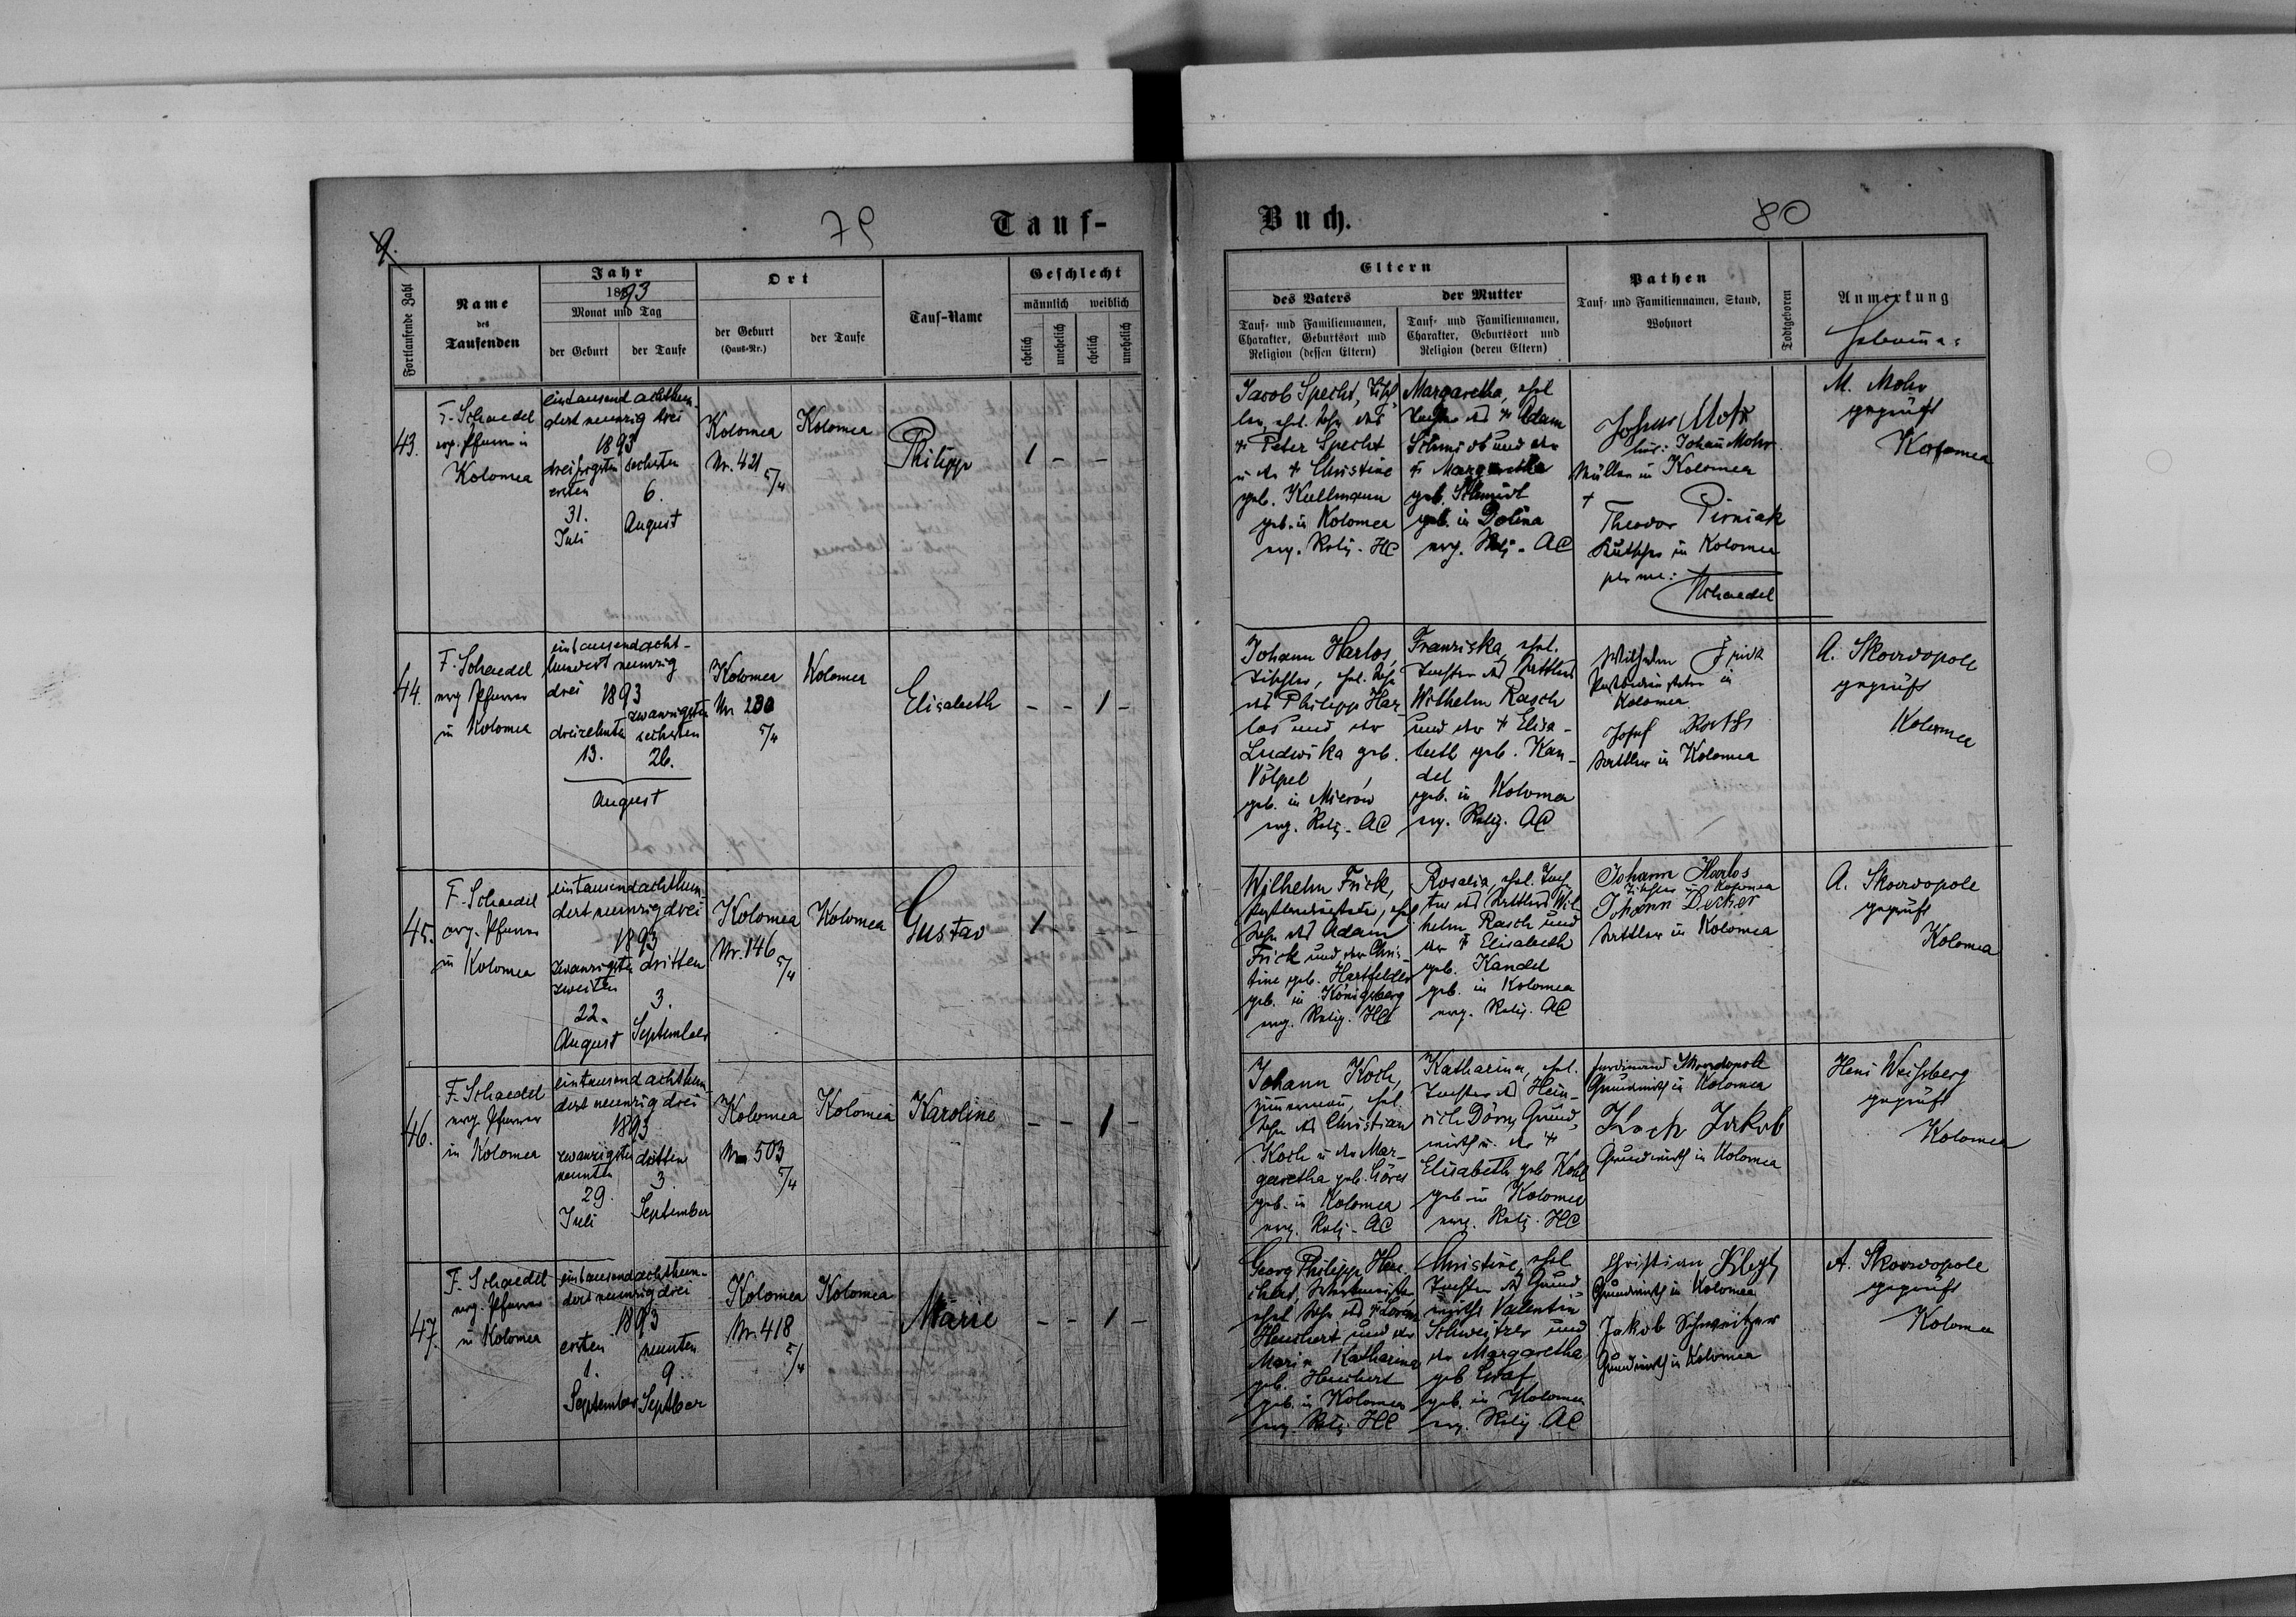 79
Tauf-
Fortlaufende Zahl
Name
des
Taufenden
Jahr
1893
Monat und Tag
der Geburt
der Taufe
Ort
der Geburt
(Haus-Nr.)
der Taufe
Tauf-Name
Geschlecht
männlich weiblich
ehelich
unehelich
ehelich
unehelich
43.
F. Schaedel
evg. Pfarrer in
Kolomea
eintausend achthun-
dert neunzig drei
1893
dreißigsten
ersten
31.
Juli
sechsten
6.
August
Kolomea
Nr. 421
5/4
Kolomea
Philipp
1 - -
44.
F. Schaedel
evg Pfarrer
in Kolomea
eintausendacht-
hundert neunzig
drei 1893
dreizehnten
13.
zwanzigsten
sechsten
26.
August
Kolomea
Nr 230
5/4
Kolomea
Elisabeth
- - 1 -
45.
F. Schaedel
evg. Pfarrer
in Kolomea
eintausendachthun-
dert neunzig drei
1893
zwanzigsten
zweiten
22.
August
dritten
3.
September
Kolomea
Nr. 146
5/4
Kolomea
Gustav
1 - - -
46.
F. Schaedel
evg. Pfarrer
in Kolomea
eintausend achthun-
dert neunzig drei
1893
zwanzigsten
neunten
29.
Juli
dritten
3.
September
Kolomea
Nr 503
5/4
Kolomea
Karoline
- - 1 -
47.
F. Schaedel
evg. Pfarrer
in Kolomea
eintausendachthun-
dert neunzig drei
1893
ersten
1.
September
neunten
9.
Septber
Kolomea
Nr. 418
5/4
Kolomea
Marie
- - 1 -
Buch.
80
Eltern
des Vaters
Tauf- und Familiennamen,
Charakter, Geburtsort und
Religion (dessen Eltern)
der Mutter
Tauf- und Familiennamen,
Charakter, Geburtsort und
Religion (deren Eltern)
Pathen
Tauf- und Familiennamen, Stand,
Wohnort
Todtgeboren
Anmerkung
Hebamme:
Jacob Specht, Tisch
ler, ehel. Sohn des
† Peter Specht
u der † Christine
geb. Kullmann
geb. in Kolomea
evg. Relig. HC
Margaretha, ehel
Tochter des † Adam
Schmidt und der
† Margaretha
geb. Schmidt
geb. in Dolina
evg. Relig. AC
Johann Mohr
Müller in Kolomea
†
Theodor Pirniak
Kutscher in Kolomea
per me:
Schaedel
M. Mohr
geprüft
Kolomea
Johann Harlos,
Tischler, ehel. Sohn
des Philipp Har-
los und der
Ludwika geb.
Völpel
geb. in Mierów
evg. Relig. AC
Franziska, ehel.
Tochter des Sattlers
Wilhelm Rasch
und der † Elisa-
beth geb. Kan-
del
geb. in Kolomea
evg. Relig. AC
Wilhelm Frick
in
Kolomea
Josef
Sattler in Kolomea
A. Skovodopole
geprüft
Kolomea
Wilhelm Frick,
ehel
Sohn des Adam
Frick und der Chris-
tine geb. Hartfelder
geb. in Königsberg
evg. Relig. HC
Rosalia, ehel. Toch-
ter des Sattlers Wil-
helm Rasch und
der † Elisabeth
geb. Kandel
geb. in Kolomea
evg. Relig. AC
Johann Harlos
Tischler in Kolomea
Johann Decker
Sattler in Kolomea
A. Skovodopole
geprüft
Kolomea
Johann Koch,
Zimmermann, ehel.
Sohn des Christian
Koch u der Mar-
garetha geb. Göres
geb. in Kolomea
evg. Relig. AC
Katharina, ehel.
Tochter des Hein-
rich Dörn, Grund-
wirth u. der †
Elisabeth geb Kohl
geb. in Kolomea
evg. Relig. HC
Ferdinand Skovodopole
Grundwirth in Kolomea
Koch Jakob
Grundwirth in Kolomea
Heni Weißberg
geprüft
Kolomea
Georg Philipp Heu-
chert,
ehel Sohn des † Lorenz
Heuchert und der
Maria Katharina
geb. Heuchert
geb. in Kolomea
evg. Relig. HC
Christine, ehel
Tochter des Grund-
wirths Valentin
Schweitzer und
der Margaretha
geb Graf
geb. in Kolomea
evg. Relig. AC
Christian
Grundwirth in Kolomea
Jakob Schweitzer
Grundwirth in Kolomea
A. Skovodopole
geprüft
Kolomea